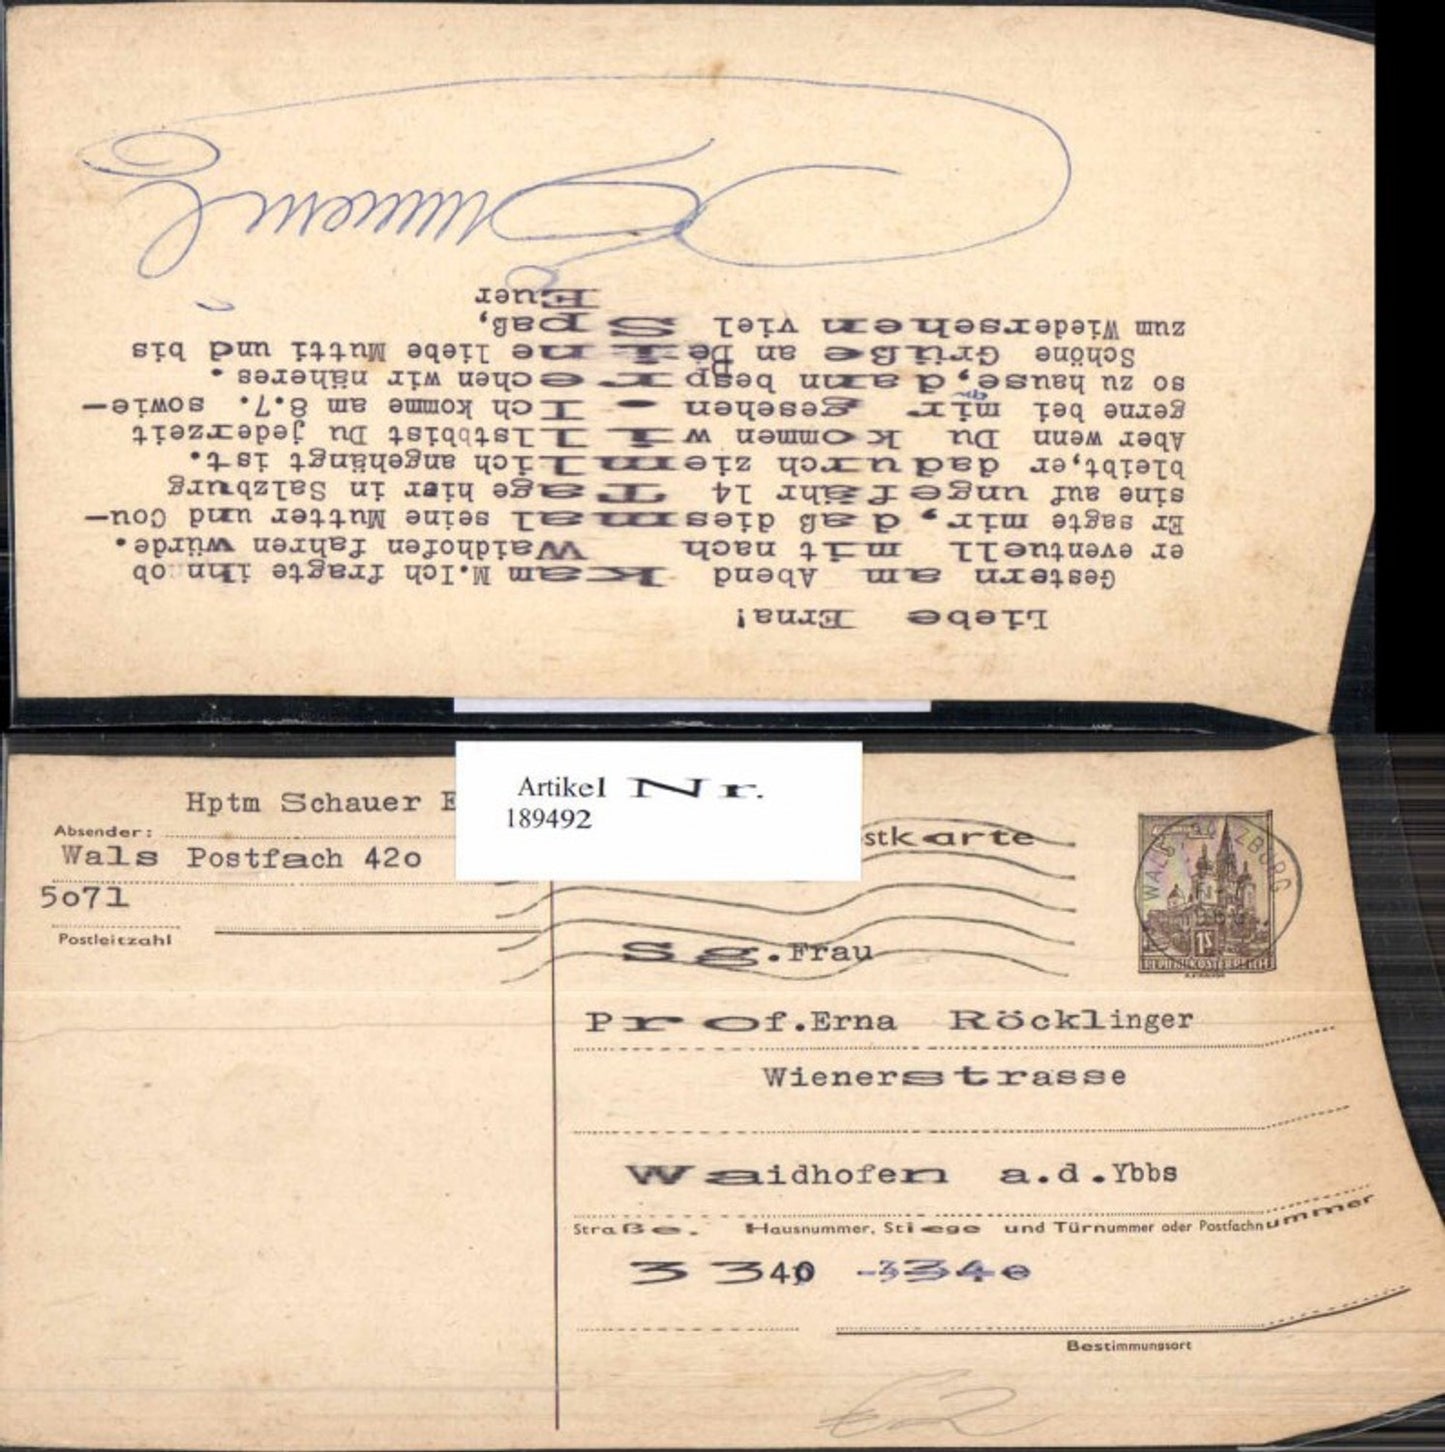 Liebe Erna!
Gestern am Abend kam M.Ich fragte ihn ob
er eventuell mit nach Waidhofen fahren würde.
Er sagte mir, daß diesmal seine Mutter und Cou-
sine auf ungefähr 14 Tage hier in Salzburg
bleibt,er dadurch ziemlich angehängt ist.
Aber wenn Du kommen willstbbist Du jederzeit
gerne bei mir gesehen - Ich komme am 8.7. sowie-
so zu hause, dann besprechen wir näheres.
Schöne Grüße an Deine liebe Mutti und bis
zum Wiedersehen viel Spaß,
Euer
Artikel Nr.
189492
Hptm Schauer E
Absender:
Wals Postfach 42o
5o71
Postleitzahl
stkarte
WALS B. SALZBURG
1S
REPUBLIK ÖSTERREICH
Sg.Frau
Prof.Erna Röcklinger
Wienerstrasse
Waidhofen a.d.Ybbs
Straße, Hausnummer, Stiege und Türnummer oder Postfachnummer
3340 3340
Bestimmungsort